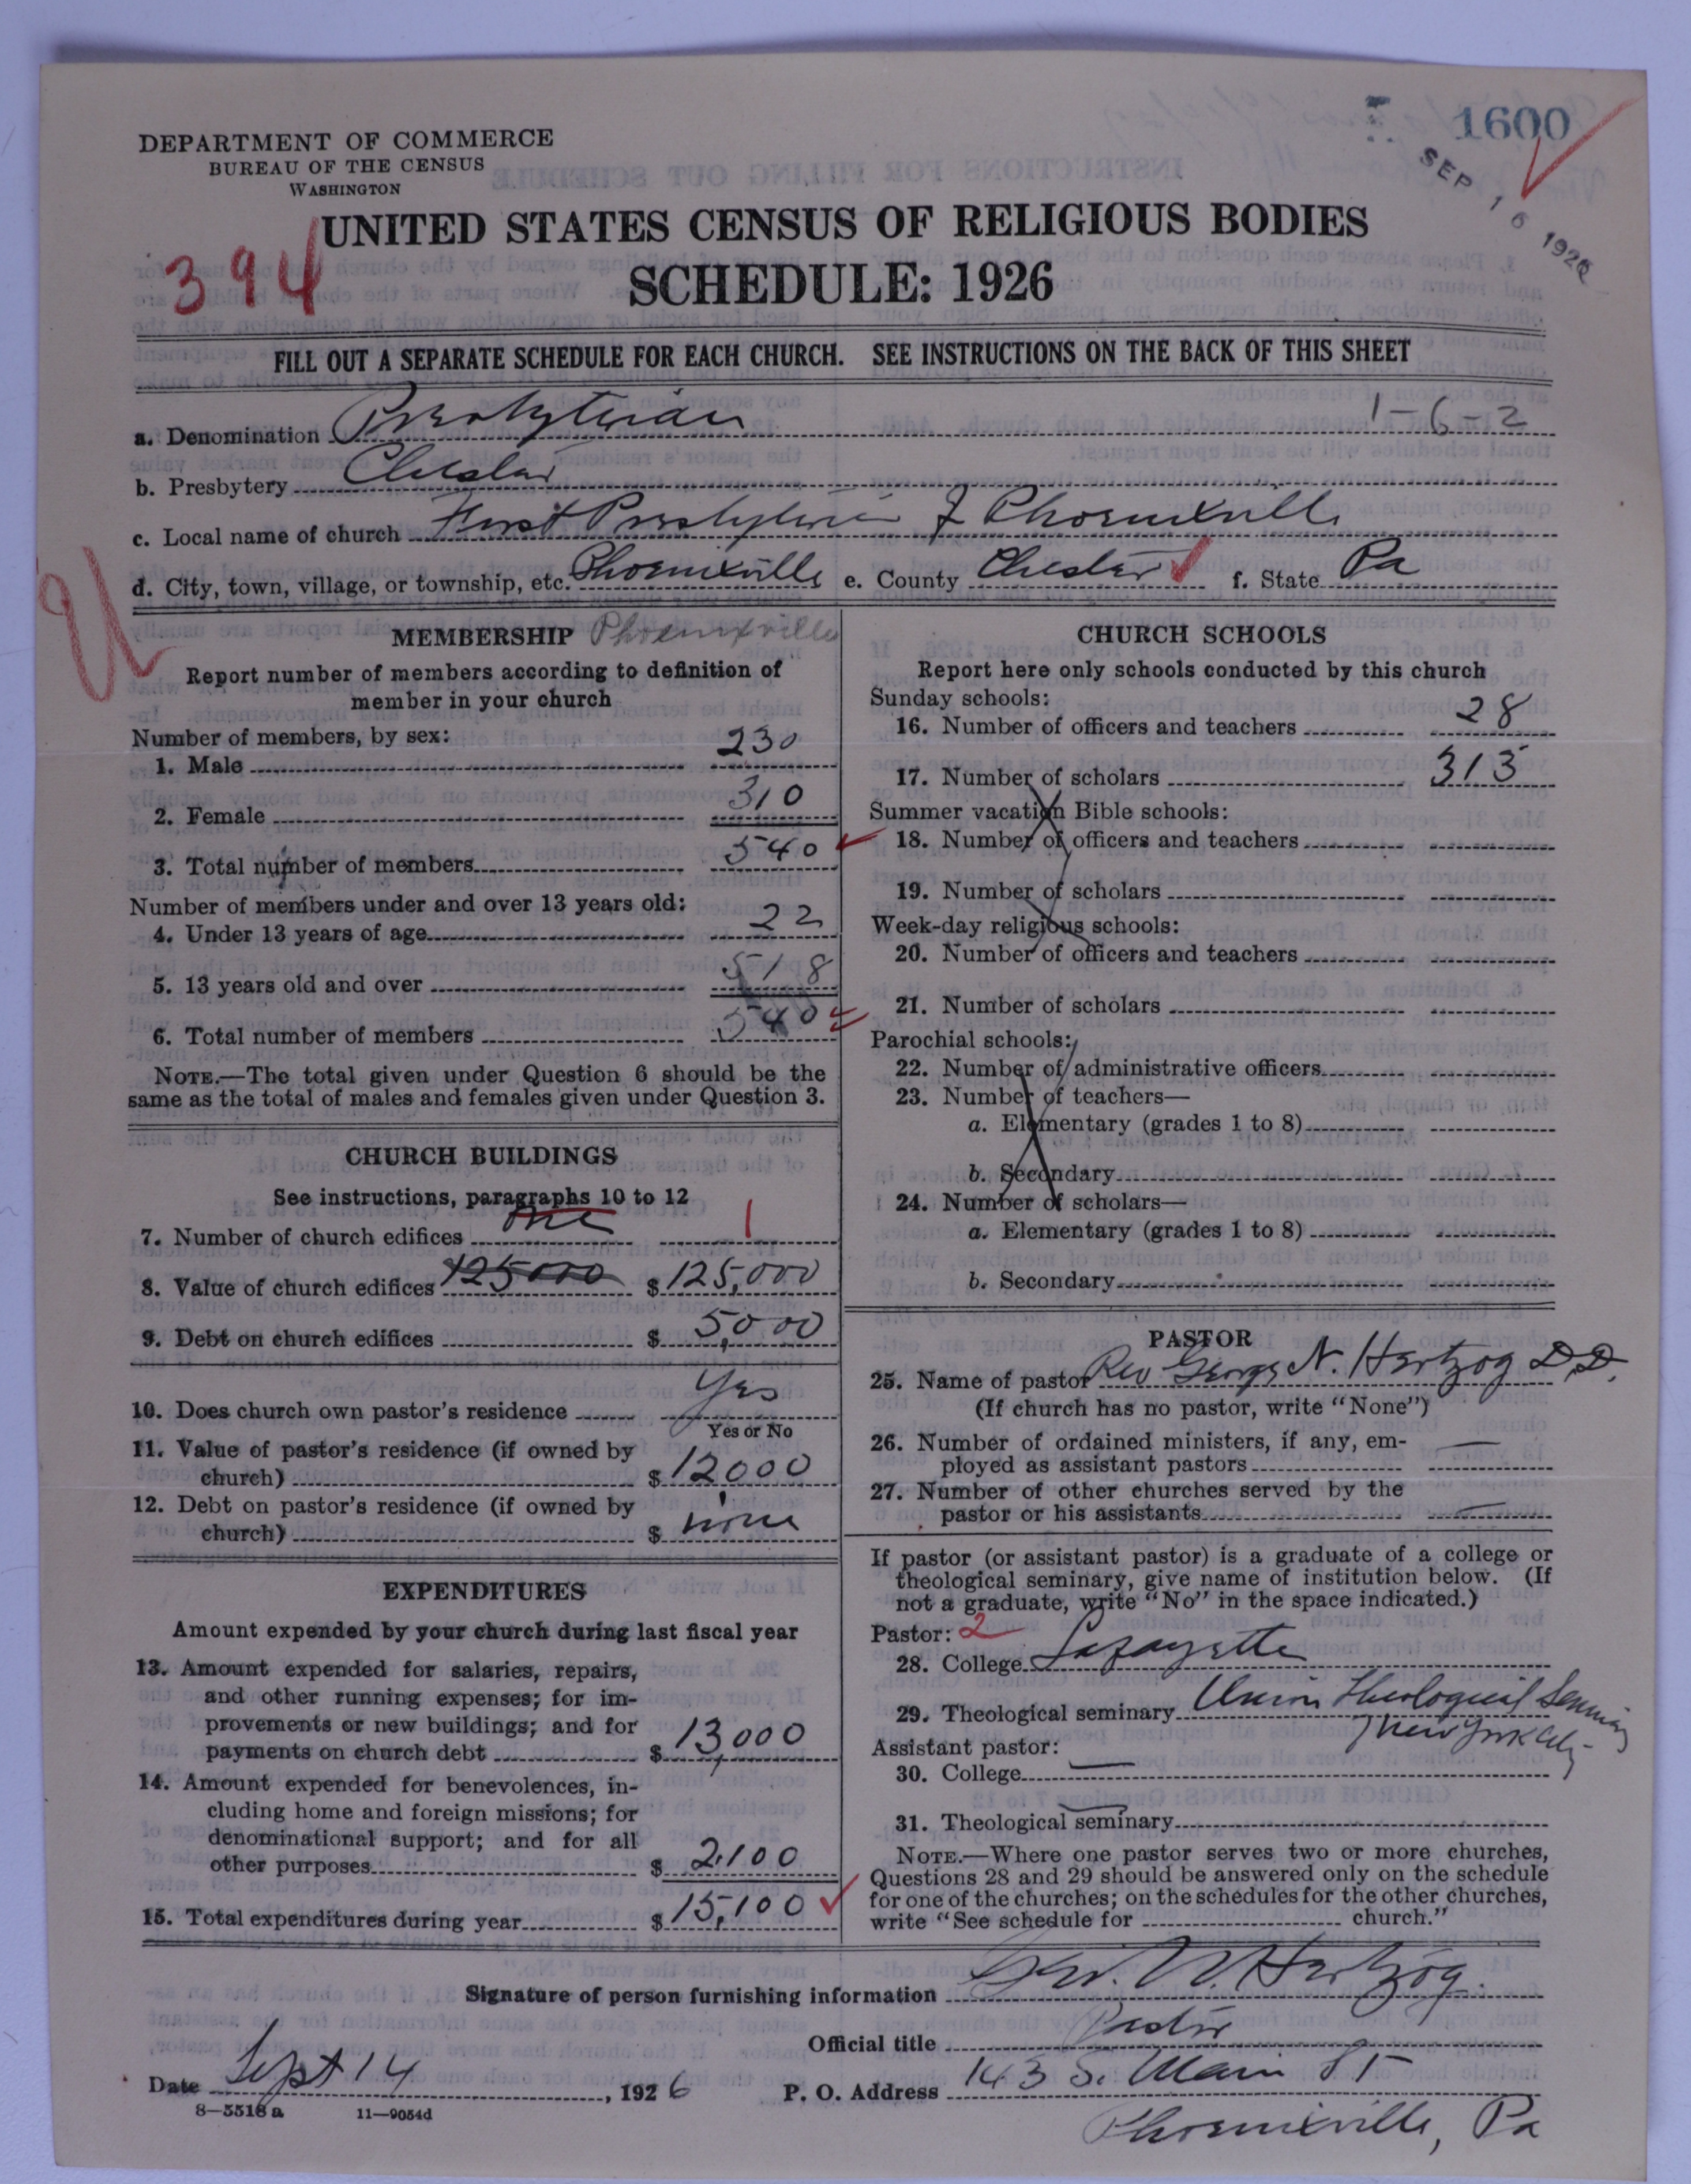 1600
SEP 16 1926
DEPARTMENT OF COMMERCE
BUREAU OF THE CENSUS
WASHINGTON
394
UNITED STATES CENSUS OF RELIGIOUS BODIES
SCHEDULE: 1926
FILL OUT A SEPARATE SCHEDULE FOR EACH CHURCH. SEE INSTRUCTIONS ON THE BACK OF THIS SHEET
a. Denomination Presbyterian 1-6-2
b. Presbytery Chester
c. Local name of church First Presbyterian of Phoenixville
d. City, town, village, or township, etc. Phoenixville e. County Chester f. State Pa
MEMBERSHIP Phoenixville
Report number of members according to definition of
member in your church
Number of members, by sex:
1. Male 230
2. Female 310
3. Total number of members 540
Number of members under and over 13 years old:
4. Under 13 years of age 22
5. 13 years old and over 518
6. Total number of members 540
NOTE.—The total given under Question 6 should be the
same as the total of males and females given under Question 3.
CHURCH BUILDINGS
See instructions, paragraphs 10 to 12
7. Number of church edifices one 1
8. Value of church edifices 125000 $125,000
9. Debt on church edifices $ 5,000
10. Does church own pastor's residence Yes
Yes or No
11. Value of pastor's residence (if owned by
church) $12000
12. Debt on pastor's residence (if owned by
church) $ none
EXPENDITURES
Amount expended by your church during last fiscal year
13. Amount expended for salaries, repairs,
and other running expenses; for im-
provements or new buildings; and for
payments on church debt $ 13,000
14. Amount expended for benevolences, in-
cluding home and foreign missions; for
denominational support; and for all
other purposes $ 2,100
15. Total expenditures during year $ 15,100
CHURCH SCHOOLS
Report here only schools conducted by this church
Sunday schools:
16. Number of officers and teachers 28
17. Number of scholars 313
Summer vacation Bible schools:
18. Number of officers and teachers
19. Number of scholars
Week-day religious schools:
20. Number of officers and teachers
21. Number of scholars
Parochial schools:
22. Number of administrative officers
23. Number of teachers—
a. Elementary (grades 1 to 8)
b. Secondary
24. Number of scholars—
a. Elementary (grades 1 to 8)
b. Secondary
PASTOR
25. Name of pastor Rev George N. Hertzog D.D.
(If church has no pastor, write "None")
26. Number of ordained ministers, if any, em-
ployed as assistant pastors —
27. Number of other churches served by the
pastor or his assistants —
If pastor (or assistant pastor) is a graduate of a college or
theological seminary, give name of institution below. (If
not a graduate, write "No" in the space indicated.)
Pastor: 2
28. College Lafayette
29. Theological seminary Union Theological Seminary
New York City
Assistant pastor:
30. College —
31. Theological seminary —
NOTE.—Where one pastor serves two or more churches,
Questions 28 and 29 should be answered only on the schedule
for one of the churches; on the schedules for the other churches,
write "See schedule for church."
Signature of person furnishing information Geo. N. Hertzog.
Official title Pastor
Date Sept 14, 1926 P. O. Address 143 S. Main St
Phoenixville, Pa
8—5518a 11—9054d